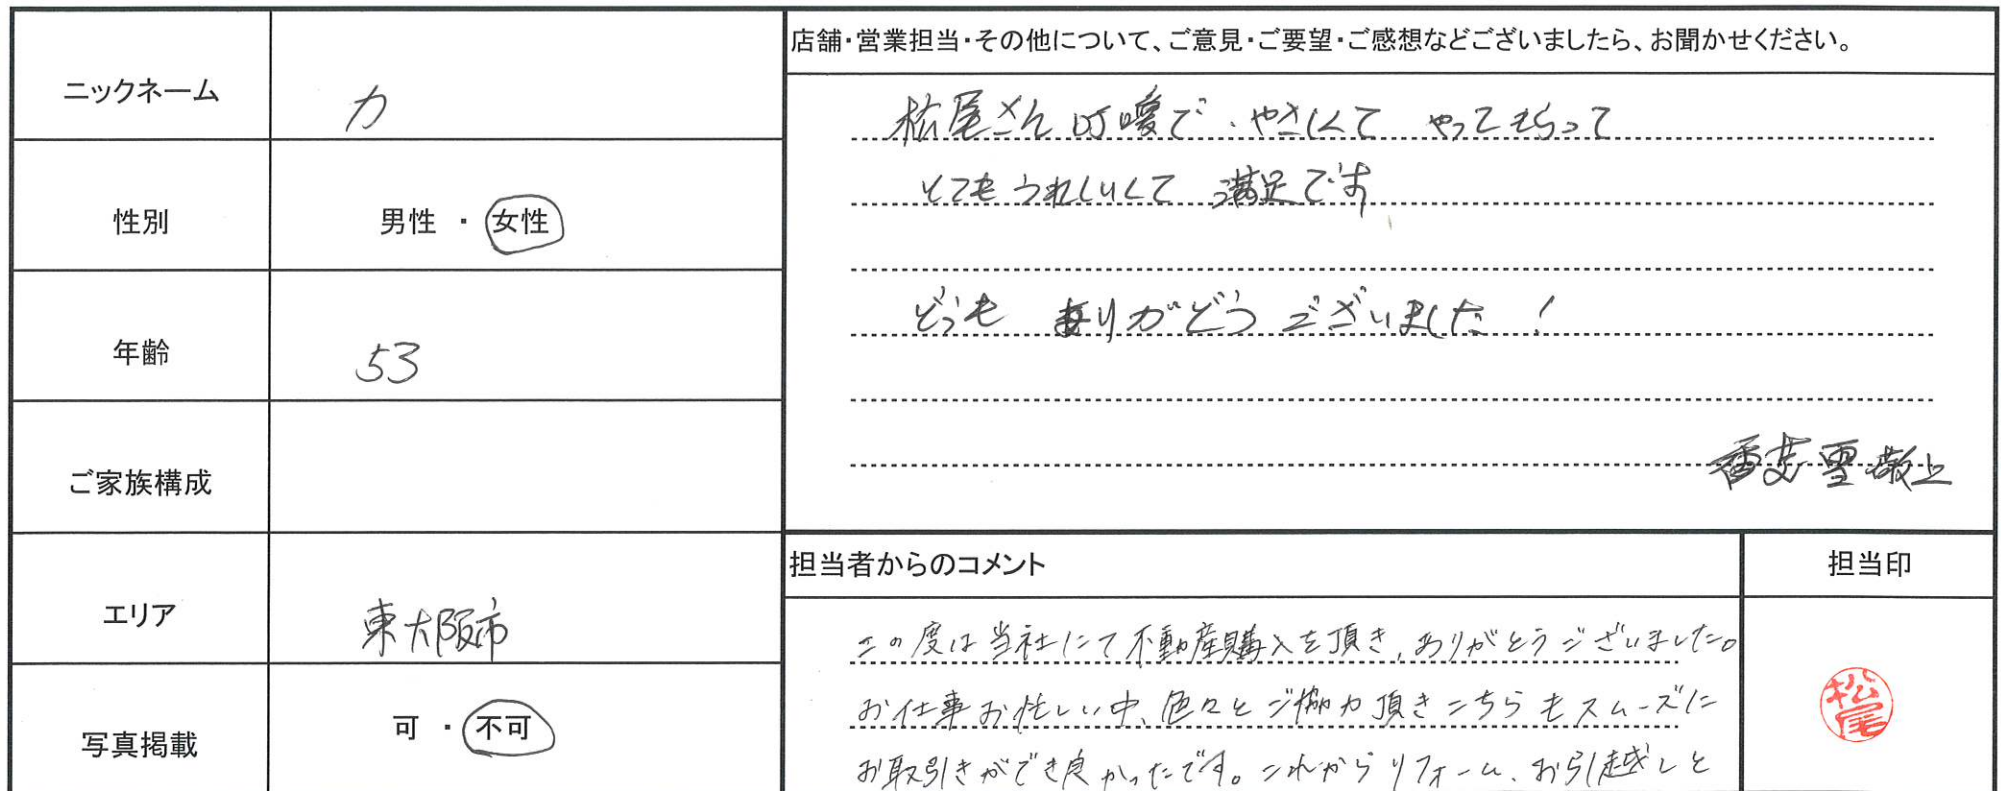 ニックネーム
カ
性別
男性 ・ 女性
年齢
53
ご家族構成
エリア
東大阪市
写真掲載
可 ・ 不可
店舗・営業担当・その他について、ご意見・ご要望・ご感想などございましたら、お聞かせください。
松尾さん 叮嚀で、やさしくて やってもらって
とてもうれしいくて 満足です
どうも ありがどう ございました！
敬上
担当者からのコメント
この度は当社にて不動産購入を頂き、ありがとうございました。
お仕事お忙しい中、色々とご協力頂きこちらもスムーズに
お取引きができ良かったです。これからリフォーム、お引越しと
担当印
松尾